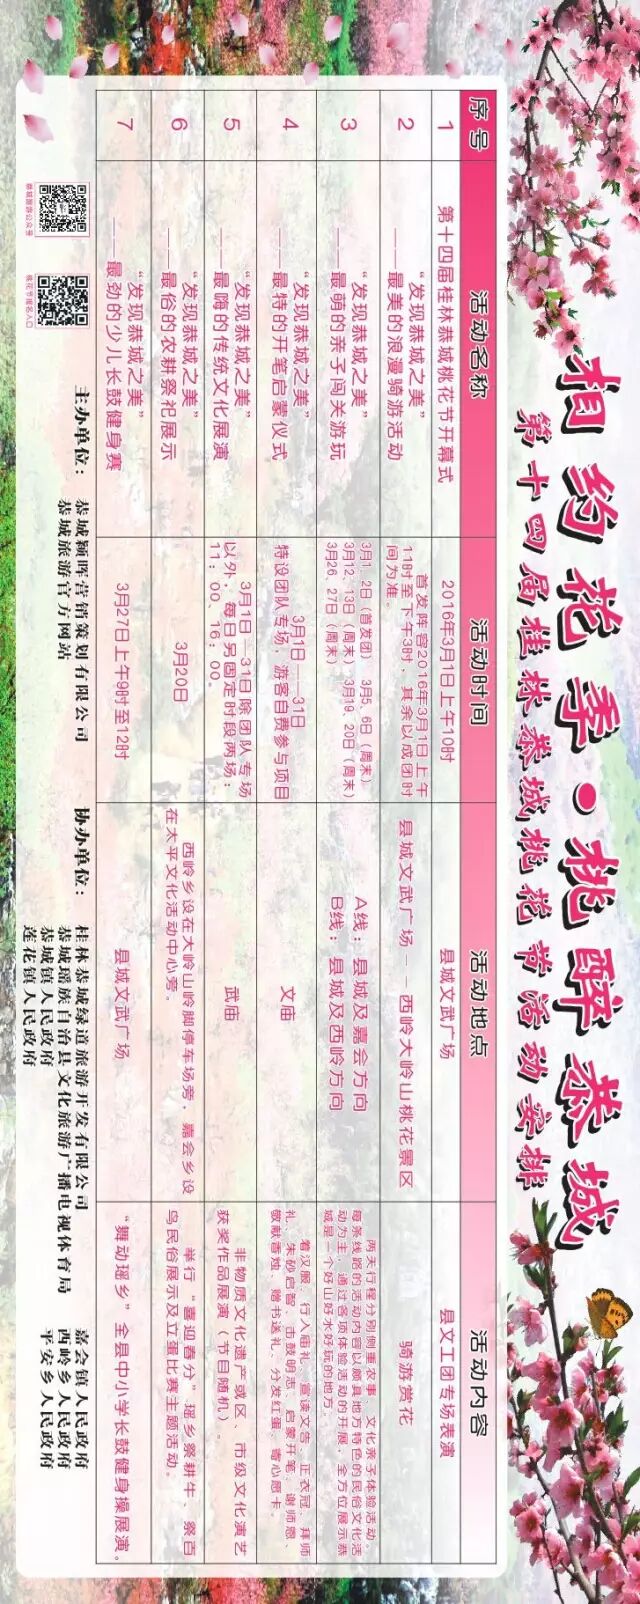 相约花季·桃醉恭城
第十四届桂林恭城桃花节活动安排
序号
活动名称
活动时间
活动地点
活动内容
1
第十四届桂林恭城桃花节开幕式
2016年3月1日上午10时
县城文武广场
县文工团专场表演
2
“发现恭城之美”
——最美的浪漫骑游活动
首发阵容2016年3月1日上午
11时至下午3时，其余以成团时
间为准。
县城文武广场——西岭大岭山桃花景区
骑游赏花
3
“发现恭城之美”
——最萌的亲子闯关游玩
3月1、2日（首发团） 3月5、6日（周末）
3月12、13日（周末） 3月19、20日（周末）
3月26、27日（周末）
A线：县城及嘉会方向
B线：县城及西岭方向
两天行程分别侧重农事、文化亲子体验活动。
每条线路的活动内容以颇具地方特色的民俗文化活
动为主，通过各项体验活动的开展，全方位展示恭
城是一个好山好水好玩的地方。
4
“发现恭城之美”
——最特的开笔启蒙仪式
3月1日——31日
特设团队专场，游客自费参与项目
文庙
着汉服、行入庙礼、宣读文告、正衣冠、拜师
礼、朱砂启智、击鼓明志、启蒙开笔、谢师恩、
敬献香烛、赠书送礼、分发红蛋、寄心愿卡。
5
“发现恭城之美”
——最嗨的传统文化展演
3月1日——31日除团队专场
以外，每日另固定时段两场：
11：00、16：00。
武庙
非物质文化遗产或区、市级文化演艺
获奖作品展演（节目随机）。
6
“发现恭城之美”
——最俗的农耕祭祀展示
3月20日
西岭乡设在大岭山岭脚停车场旁，嘉会乡设
在太平文化活动中心旁。
举行“喜迎春分”瑶乡祭耕牛、祭百
鸟民俗展示及立蛋比赛主题活动。
7
“发现恭城之美”
——最劲的少儿长鼓健身赛
3月27日上午9时至12时
县城文武广场
“舞动瑶乡”全县中小学长鼓健身操展演。
恭城旅游公众号
桃花节报名入口
主办单位：
恭城颖晖营销策划有限公司
恭城旅游官方网站
协办单位：
桂林恭城绿道旅游开发有限公司
恭城瑶族自治县文化旅游广播电视体育局
恭城镇人民政府
莲花镇人民政府
嘉会镇人民政府
西岭乡人民政府
平安乡人民政府